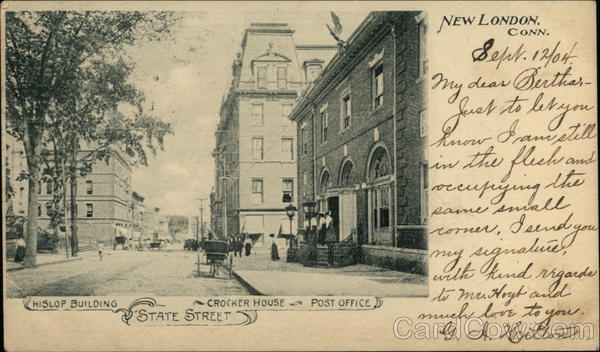 NEW LONDON,
CONN.
Sept. 12/04
My dear Bertha-
Just to let you
know I am still
in the flesh and
occupying the
same small
corner. I send you
my signature,
with kind regards
to Mr. Hoyt and
much love to you.
G. A.
HISLOP BUILDING
CROCKER HOUSE
POST OFFICE
STATE STREET
CardCow.com